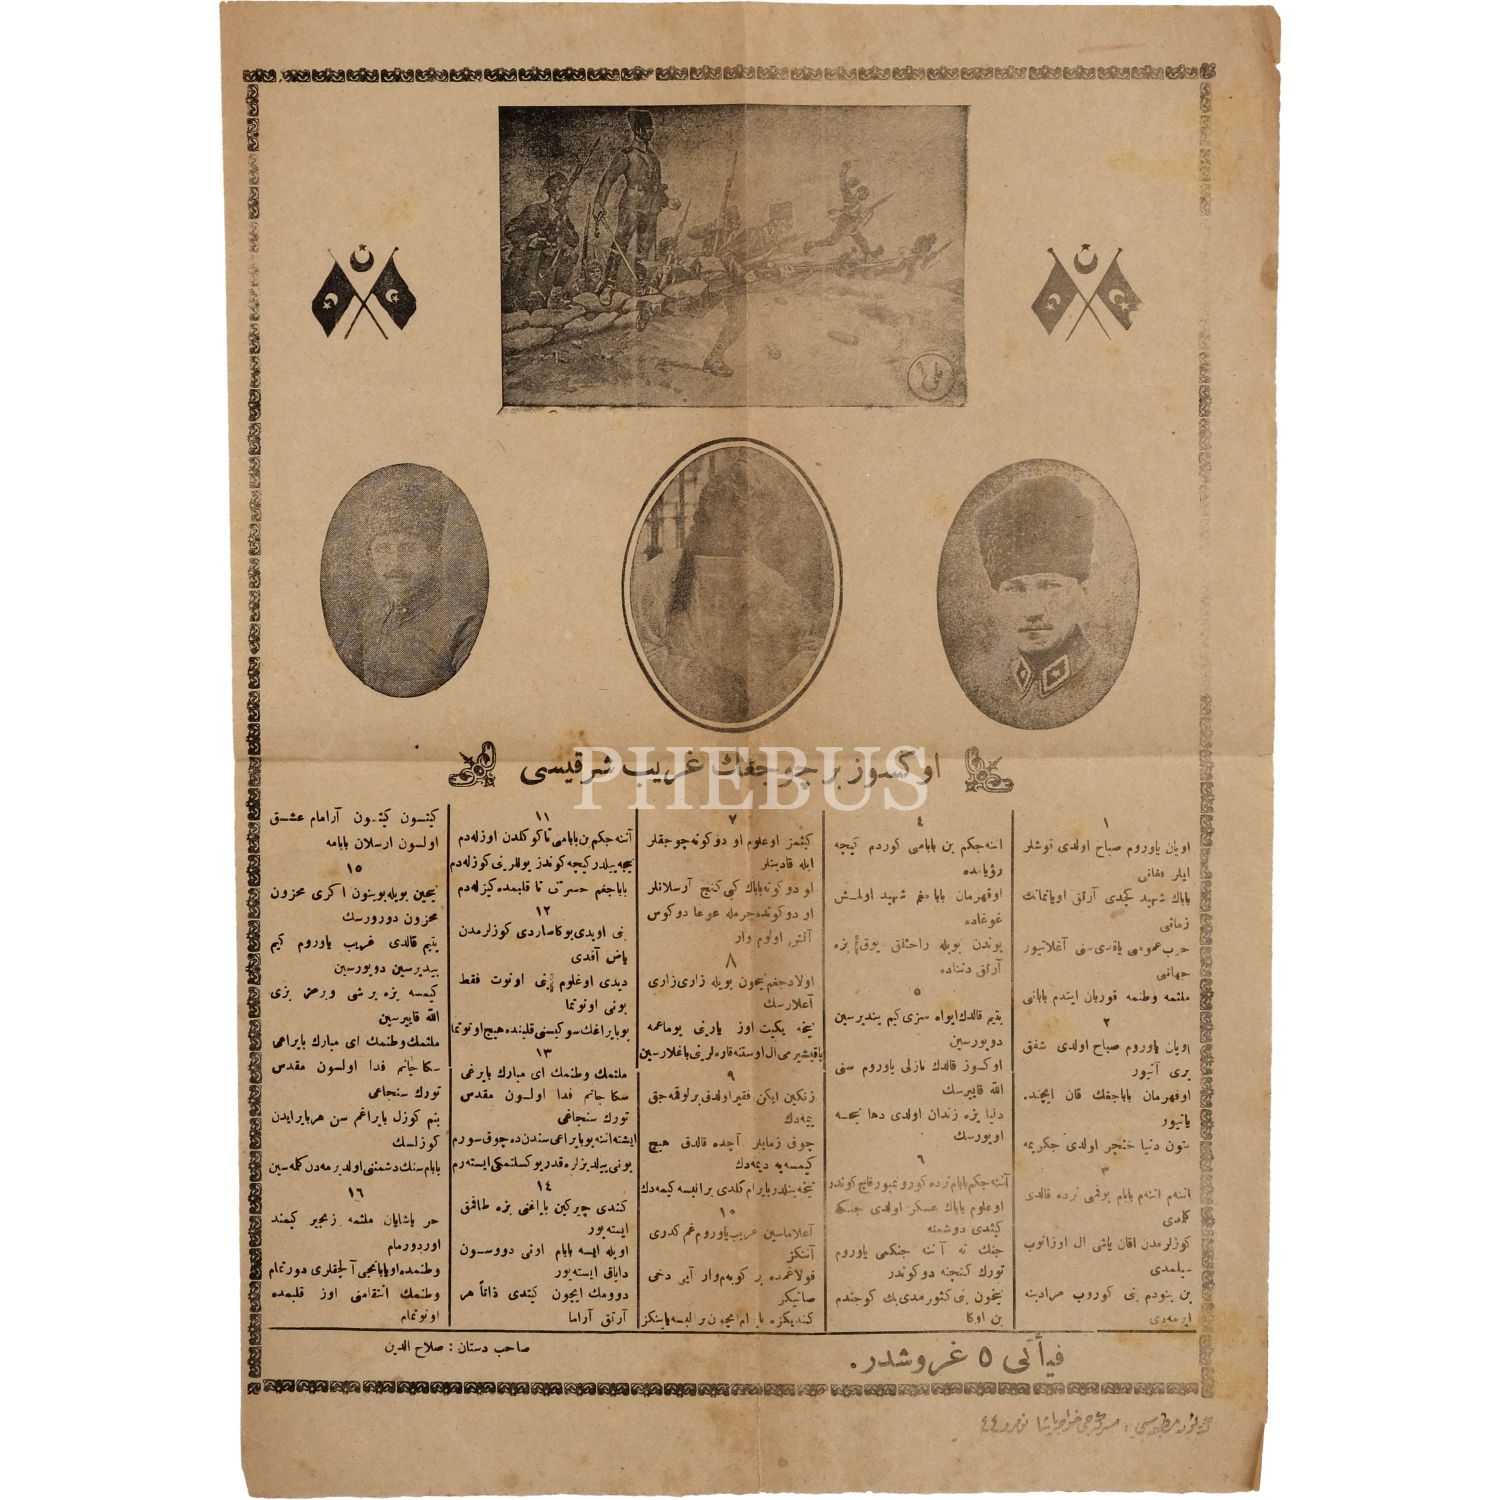 PHEBUS
اوكسوز بر چوجغك غريب شرقيسى
١
اويان ياوروم صباح اولدى قوشلر
ايلر فغانى
باباك شهيد كچدى آرتق اوياتمانك
زمانى
حرب عمومى ياقدى سنى آغلاتيور
جهانى
ملتمه وطنمه قوربان ايتدم بابانى
٢
اويان ياوروم صباح اولدى شفق
يرى آتيور
اوقهرمان باباجغك قان ايچنده
ياتيور
بتون دنيا خنچر اولدى جكريمه
٣
اننه‌م اننه‌م بابام يوقمى نرده قالدى
كلمدى
كوزلرمدن اقان ياشى ال اوزاتوب
سيلمدى
بن ينودم بنى كوروب مرادينه
ايرمه‌دى
٤
اننه جكم بن بابامى كوردم كيچه
رؤياده
اوقهرمان باباجغم شهيد اولمش
غوغاده
بوندن بويله راحتلق يوق بزه
آرتق دنياده
٥
يتيم قالدك ايواه سزى كيم ينديرسين
دويورسين
اوكسوز قالدك نازلى ياوروم سنى
الله قاييرسك
دنيا بزه زندان اولدى دها نيجه
اويورسك
٦
آننه جكم بابام نرده كورونميور قاچ كوندر
اوغلوم باباك عسكر اولدى جنكه
كيتدى دوشمنه
جنك نه آننه جنكمى ياوروم
تورك كنجنه دوكوندر
نيچون بنى كتورمدى بك كوجندم
بن اوكا
٧
كيتمز اوغلوم او دوكونه چوجقلر
ايله قادينلر
او دوكونه باباك كبى كنج آرسلانلر
او دوكونده جرمله غوغا دوكوس
آتش اولوم وار
٨
اولادجغم نيچون بويله زارى زارى
آغلارسك
نيچه يكيت اوز يارينى يوماغمه
ياقيشيرمى ال اوستنه قاره‌لرينى باغلارسين
٩
زنكين ايكن فقير اولدق بر لوقمه جق
ييمه‌دك
چوق زمانلر آچده قالدق هيچ
كيمسه يه ديمه‌دك
نيچه ييلدر بايرام كلدى بر البسه كيمه‌دك
١٠
آغلاماسين غريب ياوروم غم كدرى
آتنكز
قولاغمده بر كوپه‌م وار آنى دخى
صاتيكز
كنديكزه بايرام ايچون بر البسه ياپنكز
١١
آننه جكم بن بابامى تا كوكلدن اوزله‌دم
نيجه ييلدر كيچه كوندز يوللرينى كوزله‌دم
باباجغم حسرتى تا قلبمده كيزله‌دم
١٢
بنى اوپدى بوكا صاردى كوزلرمدن
ياش آقدى
ديدى اوغلوم بنى اونوت فقط
بونى اونوتما
بو بايراغك سوكيسنى قلبنده هيچ اونوتما
١٣
ملتمك وطنمك اى مبارك بايرغى
سكا جانم فدا اولسون مقدس
تورك سنجاغى
ايشته اننه بو بايراغى سندن ده چوق سورم
بونى ييلديزلره قدر يوكسلتمكى ايسته‌رم
١٤
كندى چيركين باياغنى بزه طاقمق
ايسته‌يور
اويله ايسه بابام اونى دووسون
داياق ايسته‌يور
دوومك ايچون كيتدى ذاتاً هر
آرتق آراما
كيتسون كيتسون آرامام عشق
اولسون ارسلان بابامه
١٥
نيچين بويله بوينون اكرى محزون
محزون دورورسك
يتيم قالدى غريب ياوروم كيم
ييديرسين دويورسين
كيمسه بزه بر شى ويرمز بزى
الله قاييرسين
ملتمك وطنمك اى مبارك بايراغى
سكا جانم فدا اولسون مقدس
تورك سنجاغى
بنم كوزل بايراغم سن هر بايرايدن
كوزلسك
بابام سنك دشمنى اولديرمه‌دن كلمه‌سين
١٦
حر ياشايان ملتمه زنجير كيمند
اوردورمام
وطنمده اويابانجى آلچقلرى دورتمام
وطنمك انتقامنى اوز قلبمده
اونوتمام
فيأتى ٥ غروشدر.
صاحب دستان : صلاح الدين